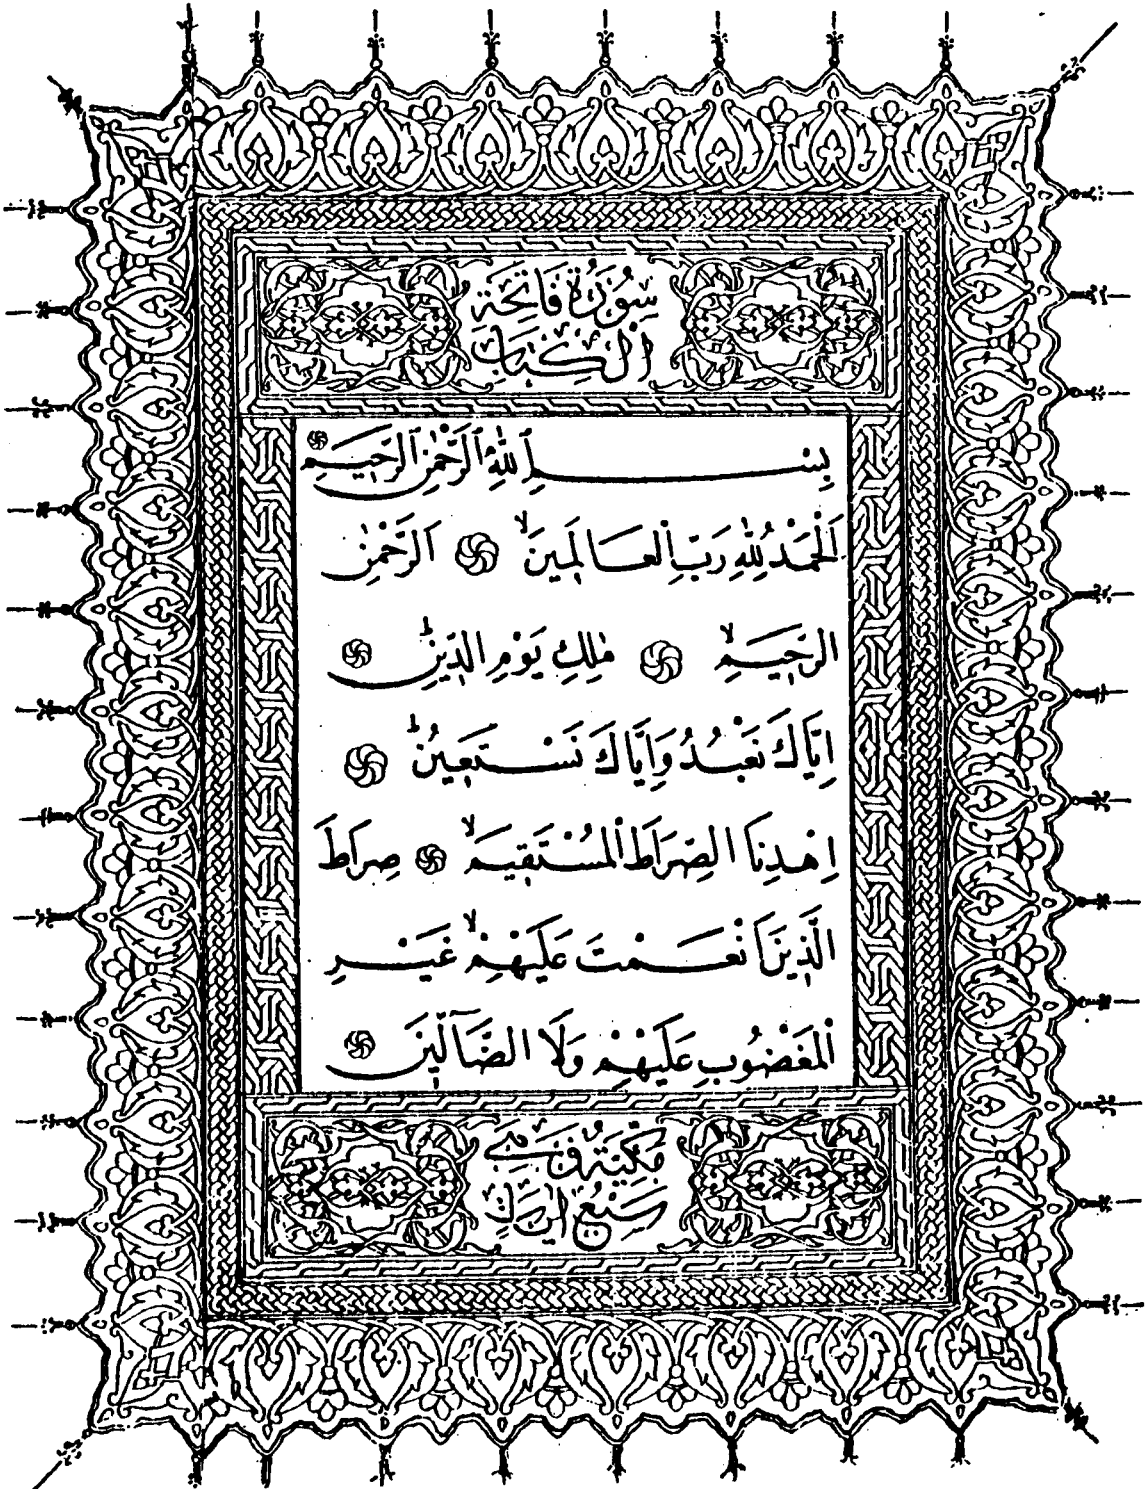 سُورَةُ فَاتِحَةِ
الْكِتَابِ
بِسْمِ ٱللّٰهِ ٱلرَّحْمٰنِ ٱلرَّحِيمِ
اَلْحَمْدُ لِلّٰهِ رَبِّ الْعَالَمِينَۙ اَلرَّحْمٰنِ
الرَّحِيمِۙ مٰلِكِ يَوْمِ الدِّينِۜ
اِيَّاكَ نَعْبُدُ وَاِيَّاكَ نَسْتَعِينُۜ
اِهْدِنَا الصِّرَاطَ الْمُسْتَقِيمَۙ صِرَاطَ
الَّذِينَ اَنْعَمْتَ عَلَيْهِمْۙ غَيْرِ
الْمَغْضُوبِ عَلَيْهِمْ وَلَا الضَّٓالِّينَ
مَكِّيَّةٌ وَهِيَ
سَبْعُ اٰيَاتٍ